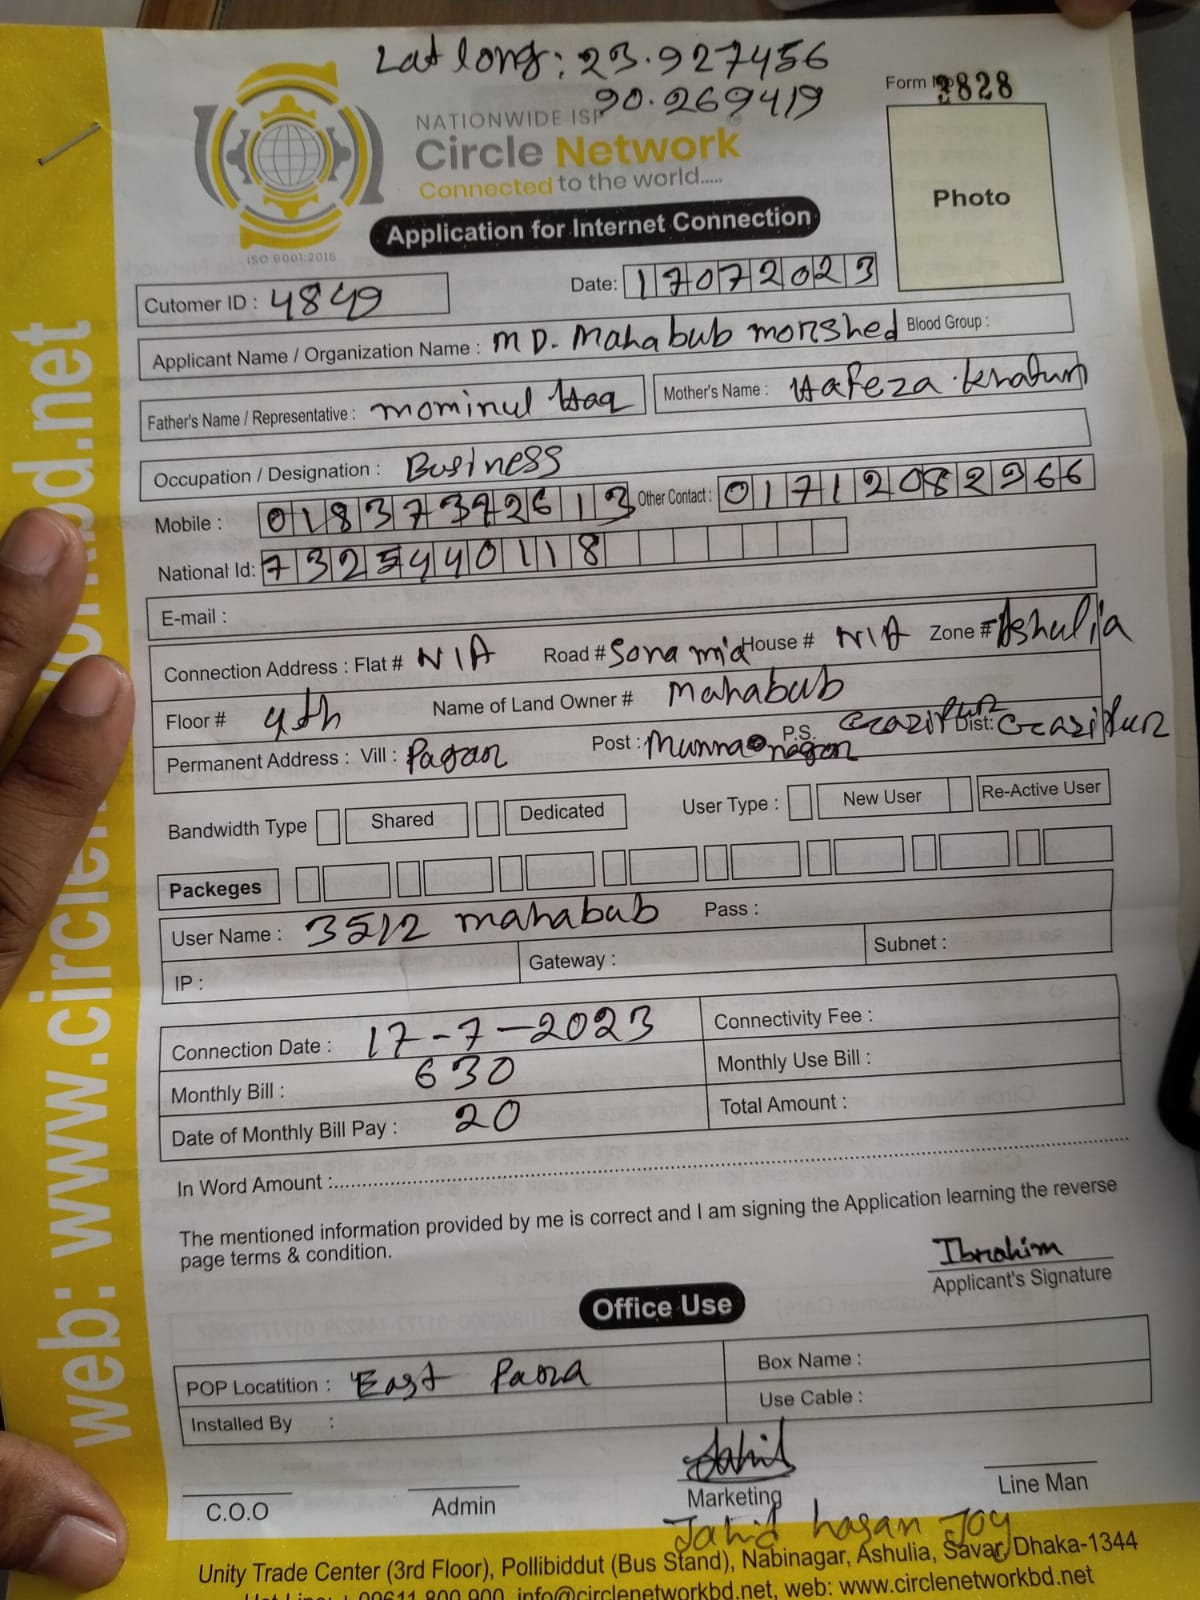 Lat long: 23.927456
90.269419
Form No 3828
NATIONWIDE ISP
Circle Network
Connected to the world.....
ISO 9001:2015
Photo
Application for Internet Connection
Date: 17072023
Cutomer ID : 4849
Applicant Name / Organization Name : MD. Mahabub morshed Blood Group :
Father's Name / Representative : mominul Haq Mother's Name : Hafeza khatun
Occupation / Designation : Business
Mobile : 01837372613 Other Contact : 01712082966
National Id: 7325440118
E-mail :
Connection Address : Flat # N/A Road # Sona mia House # N/A Zone # Ashulia
Floor # 4th Name of Land Owner # Mahabub
Permanent Address : Vill : Pagar Post : Munno nagor P.S. Gazipur Dist: Gazipur
Bandwidth Type Shared Dedicated User Type : New User Re-Active User
Packeges
User Name : 3512 mahabub Pass :
IP : Gateway : Subnet :
Connection Date : 17-7-2023 Connectivity Fee :
Monthly Bill : 630 Monthly Use Bill :
Date of Monthly Bill Pay : 20 Total Amount :
In Word Amount :
The mentioned information provided by me is correct and I am signing the Application learning the reverse
page terms & condition.
Ibrahim
Applicant's Signature
Office Use
POP Locatition : East Para Box Name :
Installed By : Use Cable :
Jahid
C.O.O Admin Marketing Line Man
Jahid hasan Joy
Unity Trade Center (3rd Floor), Pollibiddut (Bus Stand), Nabinagar, Ashulia, Savar, Dhaka-1344
09611 800 900, info@circlenetworkbd.net, web: www.circlenetworkbd.net
web: www.circlenetworkbd.net